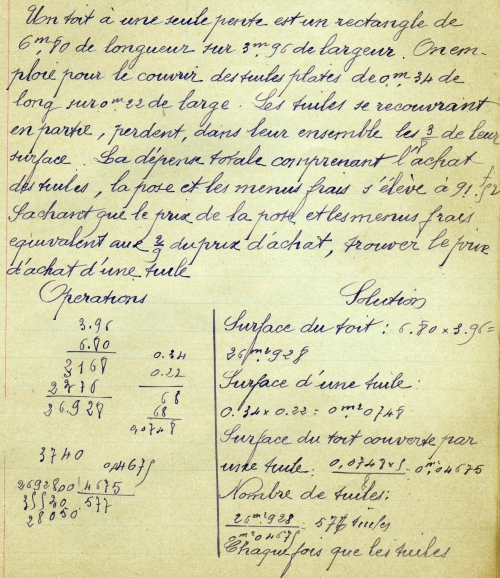 Un toit à une seule pente est un rectangle de
6m,80 de longueur sur 3m,96 de largeur. On em-
ploie pour le couvrir des tuiles plates de 0m,34 de
long sur 0m22 de large. Les tuiles se recouvrant
en partie, perdent, dans leur ensemble les 3/8 de leur
surface. La dépense totale comprenant l'achat
des tuiles, la pose et les menus frais s'élève à 91f,52
Sachant que le prix de la pose et les menus frais
équivalent aux 2/9 du prix d'achat, trouver le prix
d'achat d'une tuile
Operations
Solution
3.96
6.80
3168
2376
26.928
0.34
0.22
68
68
0,0748
3740
0,04675
2692800 4675
35530 577
28050
Surface du toit : 6.80 x 3.96 =
26m2928
Surface d'une tuile :
0.34 x 0.22 = 0m20748
Surface du toit couverte par
une tuile : 0,0748 x 5 = 0m204675
Nombre de tuiles :
26m2928 = 577 tuiles
0m204675
Chaque fois que les tuiles